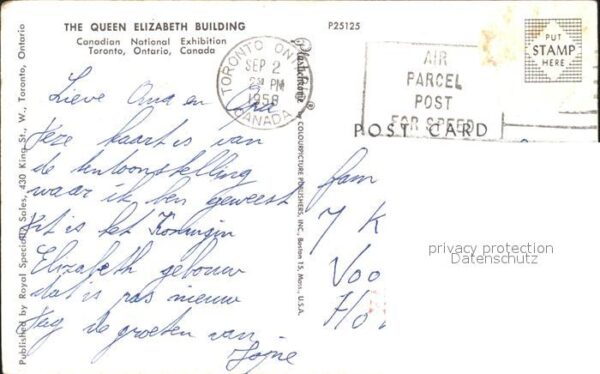 THE QUEEN ELIZABETH BUILDING
Canadian National Exhibition
Toronto, Ontario, Canada
P25125
Published by Royal Specialty Sales, 430 King St., W., Toronto, Ontario
Plastichrome ® by COLOURPICTURE PUBLISHERS, INC., Boston 15, Mass., U.S.A.
TORONTO ONT.
SEP 2
PM
1958
CANADA
AIR
PARCEL
POST
FOR SPEED
PUT
STAMP
HERE
POST CARD
Lieve Oma en Opa
Deze kaart is van
de tentoonstelling
waar ik ben geweest
Dit is het Koningin
Elizabeth gebouw
dat is pas nieuw
Dag de groeten van
fam
K
Voo
Ho
privacy protection
Datenschutz